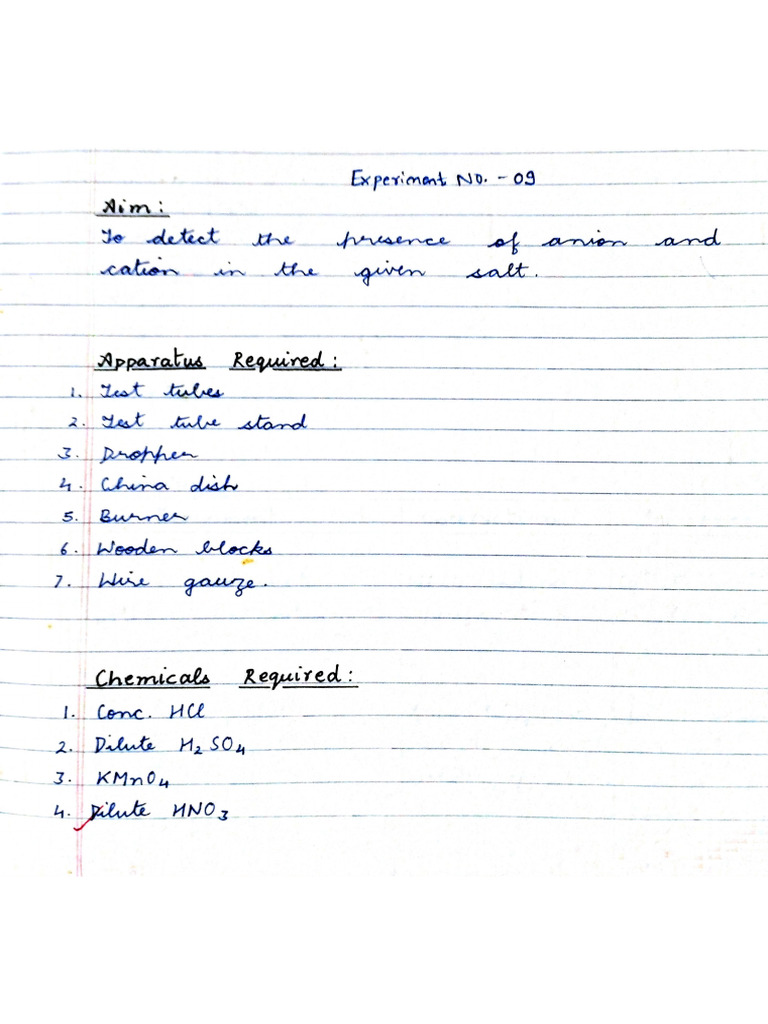 Experiment No. - 09
Aim:
To detect the presence of anion and
cation in the given salt.
Apparatus Required:
1. Test tubes
2. Test tube stand
3. Dropper
4. China dish
5. Burner
6. Wooden blocks
7. Wire gauze.
Chemicals Required:
1. Conc. HCl
2. Dilute H₂SO₄
3. KMnO₄
4. Dilute HNO₃